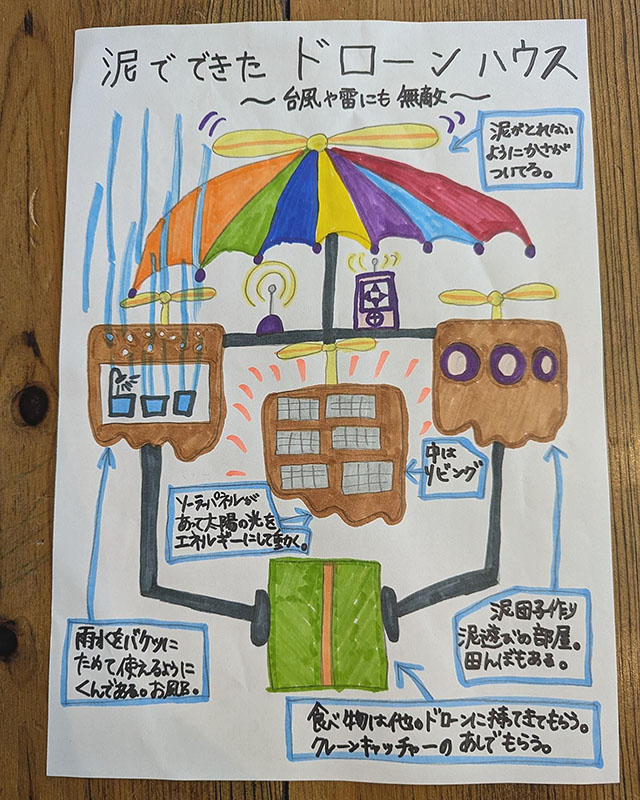 泥でできた ドローンハウス
〜 台風や雷にも 無敵 〜
泥がとれない
ようにかさが
ついてる。
中は
リビング
ソーラーパネルが
あって太陽の光を
エネルギーにして動く。
雨水をバケツに
ためて使えるように
くんである。お風呂。
泥団子作り
泥遊びの部屋。
田んぼもある。
食べ物は他のドローンに持てきてもらう。
クレーンキャッチャーの あしでもらう。